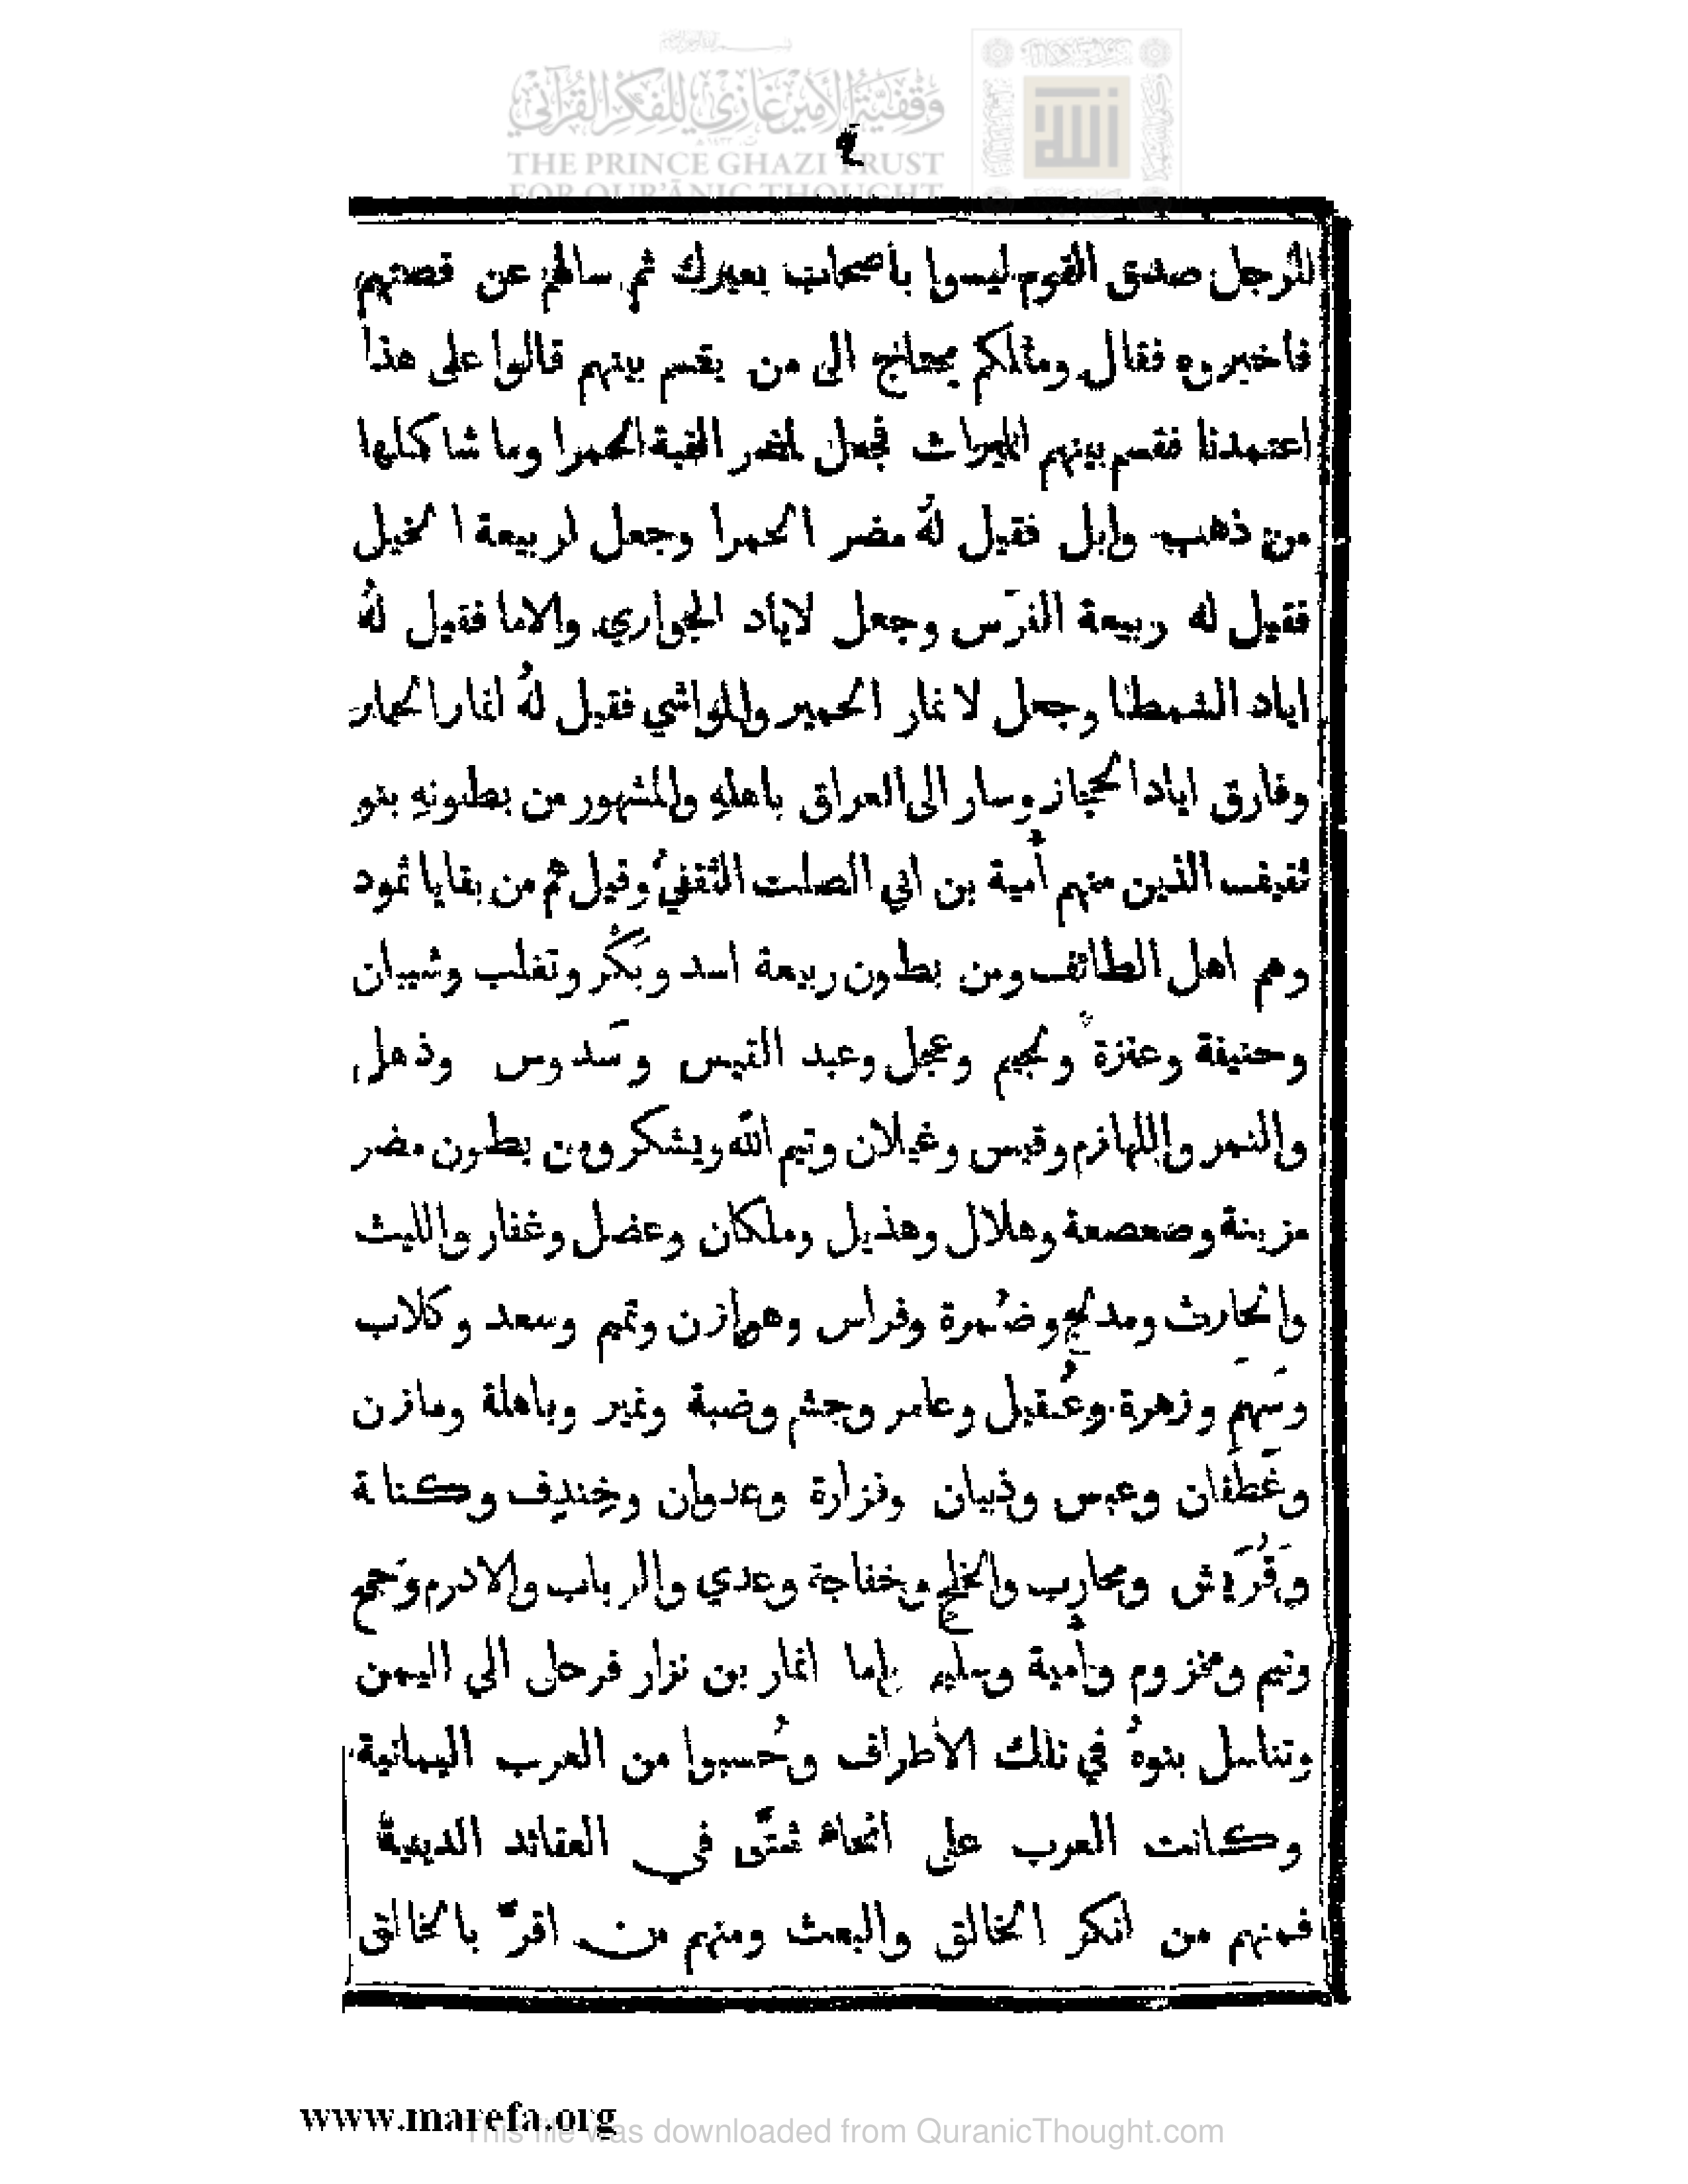 وقفية الأمير غازي للفكر القرآني
THE PRINCE GHAZI TRUST
FOR QUR'ĀNIC THOUGHT
٤
للرجل صدق القوم ليسوا بأصحاب بعيرك ثم سالهم عن قصتهم
فاخبروه فقال ومثلكم يحتاج الى من يقسم بينهم قالوا على هذا
اعتمدنا فقسم بينهم الميراث فجعل لمضر القبة الحمرا وما شاكلها
من ذهب وابل فقيل لهُ مضر الحمرا وجعل لربيعة الخيل
فقيل له ربيعة الفرَس وجعل لاياد الجواري والاما فقيل لهُ
اياد الشمطا وجعل لانمار الحمير والمواشي فقيل لهُ انمار الحمار
وفارق اياد الحجاز وسار الى العراق باهلهِ والمشهور من بطونهِ بنو
ثقيف الذين منهم أُمية بن ابي الصلت الثقفيُّ وقيل هم من بقايا ثمود
وهم اهل الطائف ومن بطون ربيعة اسد وبَكْر وتغلب وشيبان
وحنيفة وعنزة ولجيم وعجل وعبد القيس وسَدوس وذهل
والنمر واللهازم وقيس وغيلان وتيم الله ويشكر ومن بطون مضر
مزينة وصعصعة وهلال وهذيل وملكان وعضل وغفار والليث
والحارث ومدلج وضَمرة وفراس وهوازن وتميم وسعد وكلاب
وسَهم وزهرة وعُقيل وعامر وجشم وضبة ونمير وباهلة ومازن
وغَطَفان وعبس وذبيان وفزارة وعدوان وخِندِف وكنانة
وقُرَيش ومحارب والخلج وخفاجة وعدي والرباب والادرم وجمح
وتيم ومخزوم وأُمية وسليم واما انمار بن نزار فرحل الي اليمن
وتناسل بنوهُ في تلك الأطراف وحُسبوا من العرب اليمانية
وكانت العرب على انحاء شتَّى في العقائد الدينية
فمنهم من انكر الخالق والبعث ومنهم من اقرَّ بالخالق
www.marefa.org
This file was downloaded from QuranicThought.com